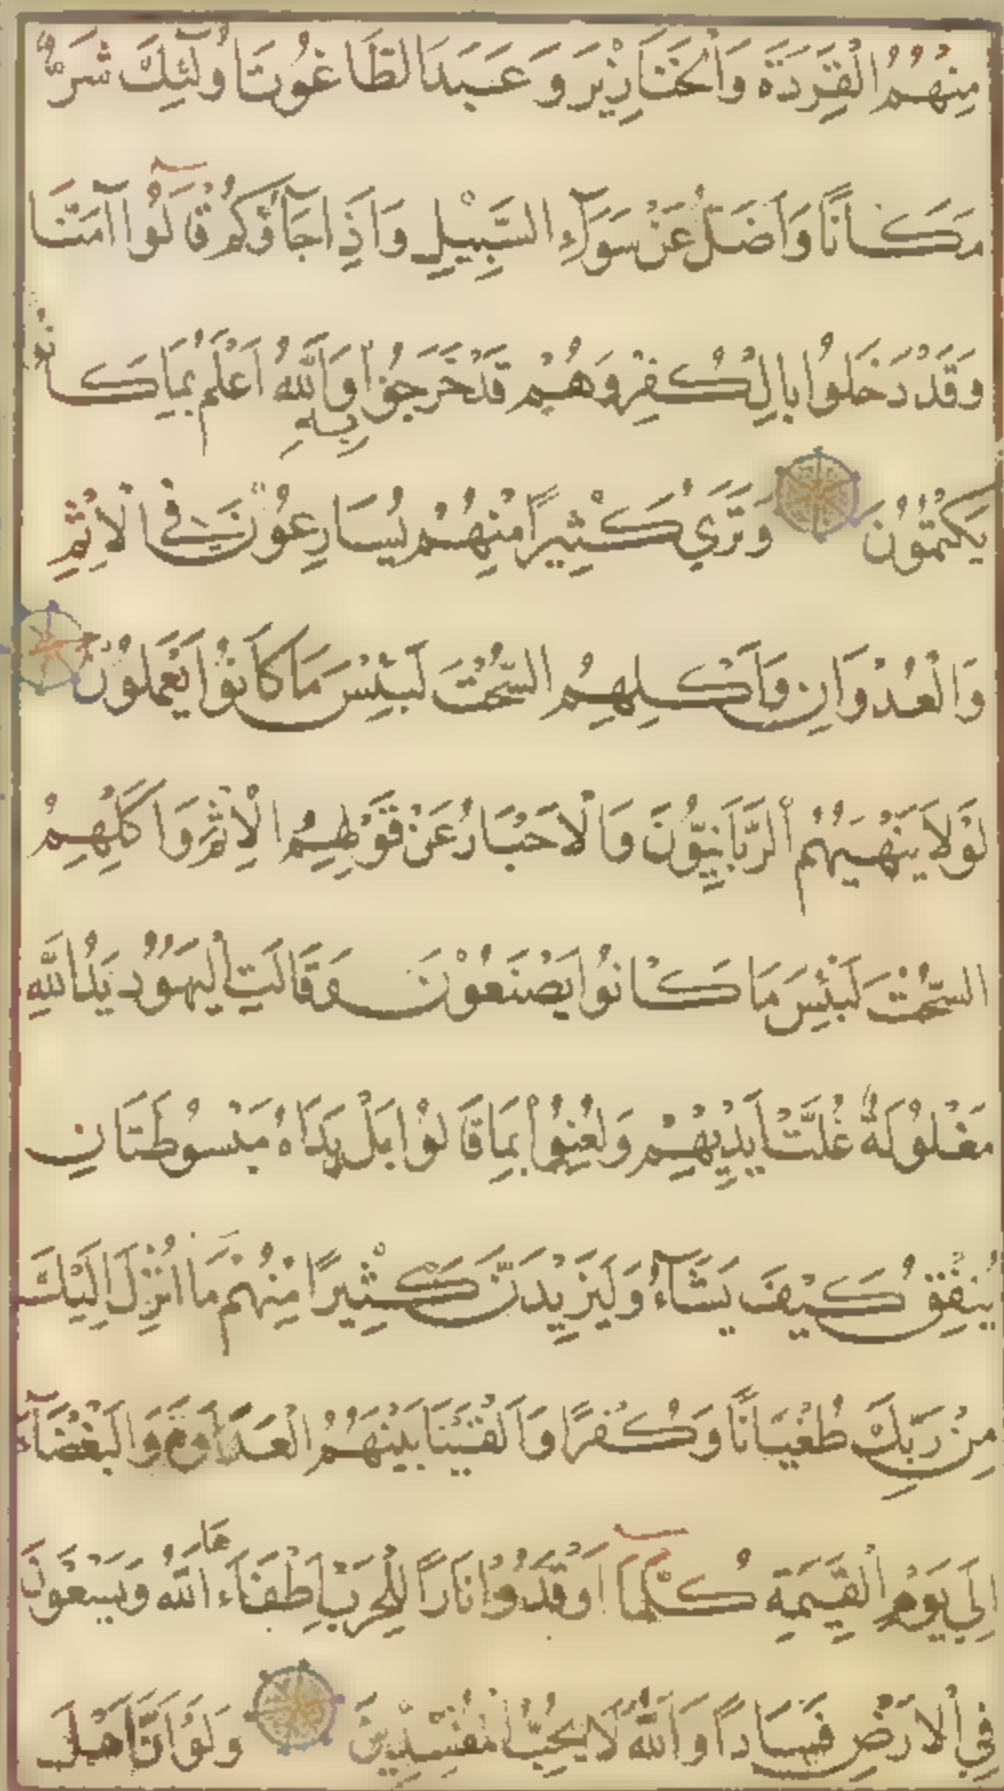 مِنْهُمُ الْقِرَدَةَ وَالْخَنَازِيْرَ وَعَبَدَ الطَّاغُوتَ اُولٰٓئِكَ شَرٌّ
مَكَانًا وَاَضَلُّ عَنْ سَوَآءِ السَّبِيْلِ وَاِذَا جَآؤُكُمْ قَالُوا اٰمَنَّا
وَقَدْ دَخَلُوا بِالْكُفْرِ وَهُمْ قَدْ خَرَجُوا بِهِ وَاللّٰهُ اَعْلَمُ بِمَا كَانُوا
يَكْتُمُوْنَ وَتَرٰي كَثِيْرًا مِنْهُمْ يُسَارِعُوْنَ فِي الْاِثْمِ
وَالْعُدْوَانِ وَاَكْلِهِمُ السُّحْتَ لَبِئْسَ مَا كَانُوْا يَعْمَلُوْنَ
لَوْلَا يَنْهٰيهُمُ الرَّبَّانِيُّوْنَ وَالْاَحْبَارُ عَنْ قَوْلِهِمُ الْاِثْمَ وَاَكْلِهِمُ
السُّحْتَ لَبِئْسَ مَا كَانُوْا يَصْنَعُوْنَ وَقَالَتِ الْيَهُوْدُ يَدُ اللّٰهِ
مَغْلُوْلَةٌ غُلَّتْ اَيْدِيْهِمْ وَلُعِنُوْا بِمَا قَالُوْا بَلْ يَدَاهُ مَبْسُوْطَتَانِ
يُنْفِقُ كَيْفَ يَشَآءُ وَلَيَزِيْدَنَّ كَثِيْرًا مِنْهُمْ مَا اُنْزِلَ اِلَيْكَ
مِنْ رَبِّكَ طُغْيَانًا وَكُفْرًا وَاَلْقَيْنَا بَيْنَهُمُ الْعَدَاوَةَ وَالْبَغْضَآءَ
اِلٰي يَوْمِ الْقِيٰمَةِ كُلَّمَآ اَوْقَدُوْا نَارًا لِلْحَرْبِ اَطْفَاَهَا اللّٰهُ وَيَسْعَوْنَ
فِي الْاَرْضِ فَسَادًا وَاللّٰهُ لَا يُحِبُّ الْمُفْسِدِيْنَ وَلَوْ اَنَّ اَهْلَ